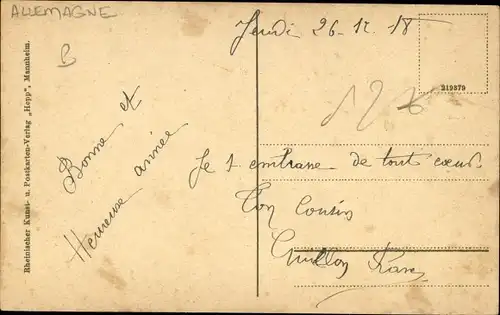 ALLEMAGNE
B
Rheinischer Kunst- u. Postkarten-Verlag „Hepp", Mannheim.
Bonne et
Heureuse année
Jeudi 26-12-18
219379
Je t embrasse de tout cœur
Ton Cousin
Guillon